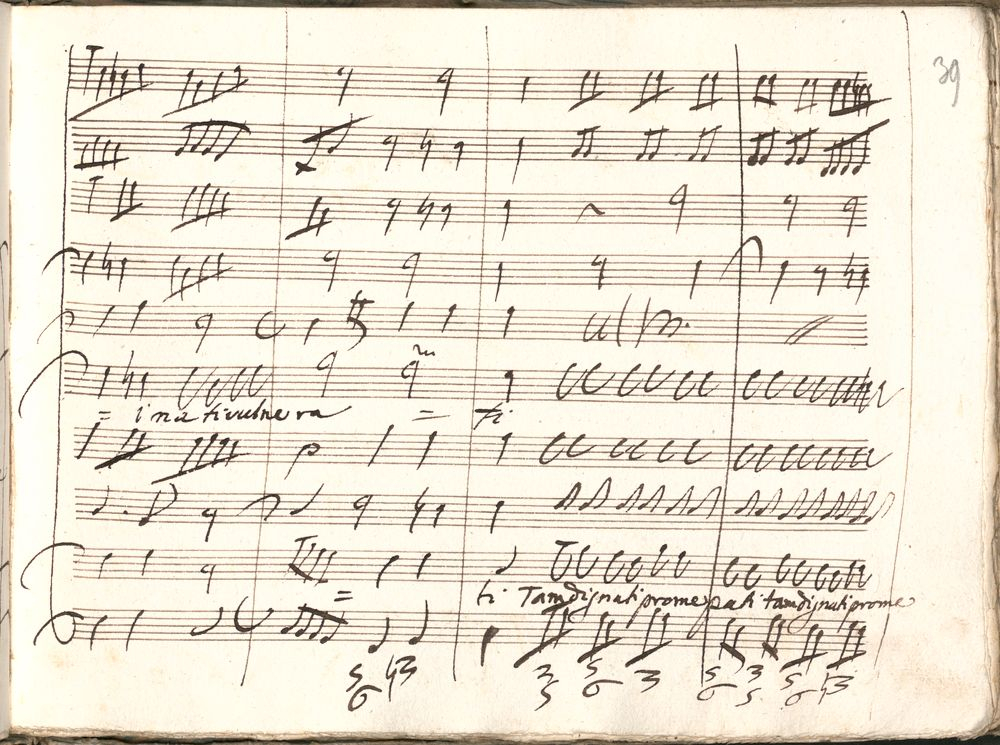 39
= inativulnera = ti
= ti Tamdignatiprome pati tamdignatiprome
5 3 5 3 5 3 5 3
6 5 6 6 5 6